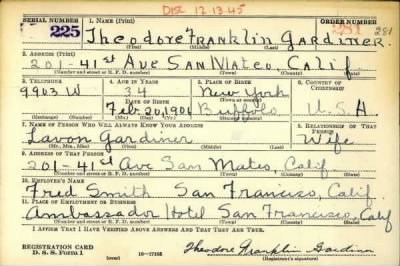 DIS. 12.13.45
SERIAL NUMBER 1. NAME (Print) ORDER NUMBER
225 Theodore Franklin Gardiner 281 281
(First) (Middle) (Last)
2. ADDRESS (Print)
201-41st Ave San Mateo, Calif.
(Number and street or R. F. D. number) (Town) (County) (State)
3. TELEPHONE 4. AGE IN YEARS 5. PLACE OF BIRTH 6. COUNTRY OF CITIZENSHIP
9903 W 34 New York
DATE OF BIRTH (Town or county)
Feb. 20, 1906 Buffalo U.S.A
(Exchange) (Number) (Mo.) (Day) (Yr.) (State or country)
7. NAME OF PERSON WHO WILL ALWAYS KNOW YOUR ADDRESS 8. RELATIONSHIP OF THAT PERSON
Lavon Gardiner Wife
(Mr., Mrs., Miss) (First) (Middle) (Last)
9. ADDRESS OF THAT PERSON
201-41st Ave San Mateo, Calif
(Number and street or R. F. D. number) (Town) (County) (State)
10. EMPLOYER'S NAME
Fred Smith San Francisco, Calif.
11. PLACE OF EMPLOYMENT OR BUSINESS
Ambassador Hotel San Francisco, Calif
(Number and street or R. F. D. number) (Town) (County) (State)
I AFFIRM THAT I HAVE VERIFIED ABOVE ANSWERS AND THAT THEY ARE TRUE.
REGISTRATION CARD Theodore Franklin Gardiner
D. S. S. Form 1 (over) 16-17105 (Registrant's signature)